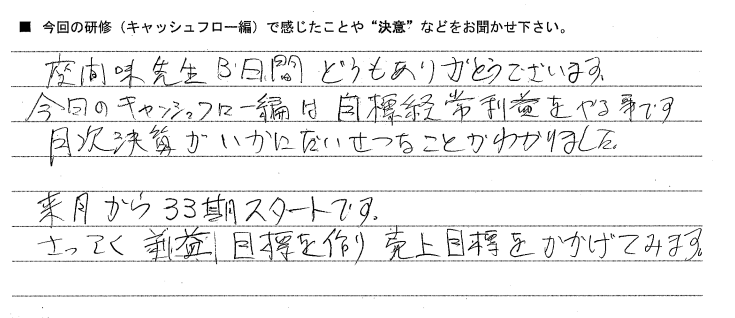 ■ 今回の研修（キャッシュフロー編）で感じたことや“決意”などをお聞かせ下さい。
座間味先生3日間どうもありがとうございます。
今回のキャッシュフロー編は目標経常利益をやる事です
月次決算がいかにたいせつなことかわかりました。
来月から33期スタートです。
さっそく利益目標を作り売上目標をかかげてみます。